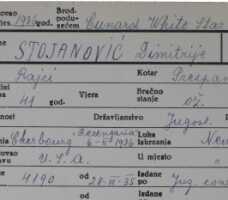 ovao
jes. 1936 god. Brod. podu- sećem Cunard White Star
me STOJANOVIĆ Dimitrije
Rajci Kotar Prespan
41 god. Vjera Bračno stanje ož.
ost Državljanstvo Jugosl.
Cherbourg "Berengaria" 6-5-1936 Luka iskrcanja New
ovao u U.S.A. U mjesto
4190 od 28-III-35 Izdane po Jug. con
Izdane